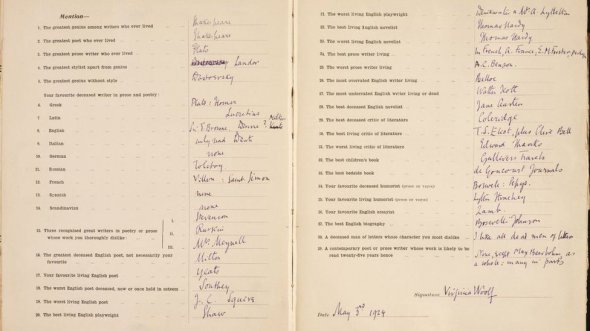 Mention—
1. The greatest genius among writers who ever lived Shakespeare
2. The greatest poet who ever lived Shakespeare
3. The greatest prose writer who ever lived Plato
4. The greatest stylist apart from genius Landor
5. The greatest genius without style Dostoevsky
Your favourite deceased writer in prose and poetry:
6. Greek Plato: Homer
7. Latin Lucretius
8. English Sir T. Browne, Donne? Milton Keats
9. Italian only read Dante
10. German none
11. Russian Tolstoy
12. French Villon: Saint Simon
13. Spanish none
14. Scandinavian none
15. Three recognised great writers in poetry or prose whose work you thoroughly dislike: i. Stevenson
ii. Ruskin
iii. Mrs Meynell
16. The greatest deceased English poet, not necessarily your favourite Milton
17. Your favourite living English poet Yeats
18. The worst English poet deceased, now or once held in esteem Southey
19. The worst living English poet J. C. Squire
20. The best living English playwright Shaw
21. The worst living English playwright
22. The best living English novelist Thomas Hardy
23. The worst living English novelist Thomas Hardy
24. The best living prose writer In French A. France, E. M. Forster
25. The worst living prose writer A. C. Benson.
26. The most overrated English writer living Belloc
27. The most underrated English writer living or dead Walter Scott
28. The best deceased English novelist Jane Austen
29. The best deceased critic of literature Coleridge
30. The best living critic of literature T. S. Eliot, plus Clive Bell
31. The worst living critic of literature Edward Marsh
32. The best children's book Gulliver's Travels
33. The best bedside book de Goncourt Journals
34. Your favourite deceased humorist (prose or verse)
35. Your favourite living humorist (prose or verse) Lytton Strachey
36. Your favourite English essayist Lamb
37. The best English biography Boswell's Johnson
38. A deceased man of letters whose character you most dislike I like all dead men of letters
39. A contemporary poet or prose writer whose work is likely to be read twenty-five years hence Max Beerbohm as a whole: many in parts
Signature Virginia Woolf
Date May 3rd 1924